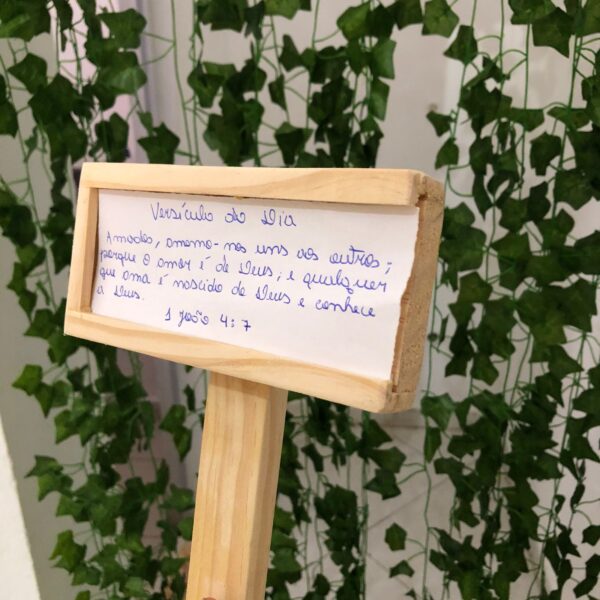 Versículo do Dia
Amados, amemo-nos uns aos outros;
porque o amor é de Deus; e qualquer
que ama é nascido de Deus e conhece
a Deus.
1 João 4:7